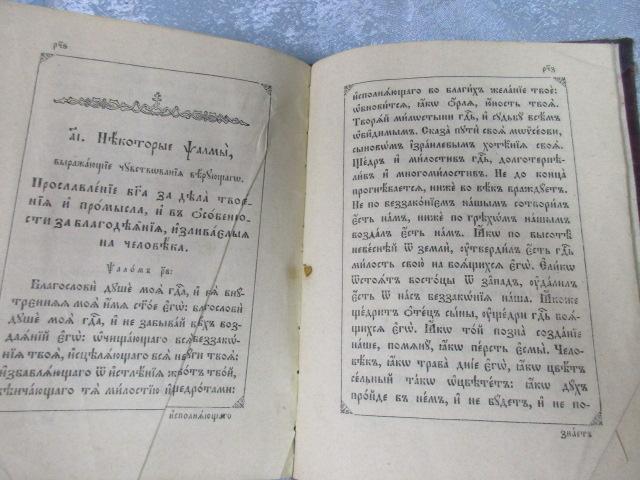 рч҃ѕ
а҃і. Нѣкоторые Ѱалмы̀,
выражающїе чувствованїѧ вѣрующагѡ.
Прославле́нїе бг҃а за дѣла̀ творе-
нїѧ и҆ про́мысла, и҆ въ ѻ҆со́бенно-
сти за благодѣѧ̑нїѧ, и҆злива́емыѧ
на человѣ́ка.
Ѱало́мъ р҃в:
Благословѝ душѐ моѧ̀ гдⷭ҇а, и҆ всѧ̑ вну̑-
треннѧѧ моѧ̑ и҆́мѧ ст҃о́е є҆гѡ̀: благословѝ
душѐ моѧ̀ гдⷭ҇а, и҆ не забыва́й всѣ́хъ воз-
даѧ́нїй є҆гѡ̀: ѡ҆чища́ющаго всѧ̑ беззакѡ́-
нїѧ твоѧ̑, и҆сцѣлѧ́ющаго всѧ̑ неду́ги твоѧ̑:
и҆збавлѧ́ющаго ѿ и҆стлѣ́нїѧ живо́тъ тво́й,
вѣнча́ющаго тѧ̀ ми́лостїю и҆ щедро́тами:
и҆сполнѧ́ющаго
рч҃з
и҆сполнѧ́ющаго во благи́хъ жела́нїе твоѐ:
ѡ҆бнови́тсѧ, ꙗ҆́кѡ ѻ҆́рлѧ, ю҆́ность твоѧ̀.
Творѧ́й ми́лѡстыни гдⷭ҇ь, и҆ судьбу̀ всѣ̑мъ
ѡ҆би̑димымъ. Сказа̀ пути̑ своѧ̑ мѡѷсе́ови,
сыновѡ́мъ і҆и҃левымъ хотѣ̑нїѧ своѧ̑.
Ще́дръ и҆ ми́лостивъ гдⷭ҇ь, долготерпѣ-
ли́въ и҆ многоми́лостивъ. Не до конца̀
прогнѣ́ваетсѧ, нижѐ во вѣ́къ вражду́етъ.
Не по беззако́нїємъ на́шымъ сотвори́лъ
є҆́сть на́мъ, нижѐ по грѣхѡ́мъ на́шымъ
возда́лъ є҆́сть на́мъ. Ꙗ҆́кѡ по высотѣ̀
небе́снѣй ѿ землѝ, ѹ҆тверди́лъ є҆́сть гдⷭ҇ь
ми́лость свою̀ на боѧ́щихсѧ є҆гѡ̀. Є҆ли́кѡ
ѿстоѧ́тъ восто́цы ѿ за́падъ, ѹ҆дали́лъ
є҆́сть ѿ на́съ беззакѡ́нїѧ на̑ша. Ꙗ҆́коже
ще́дритъ ѻ҆те́цъ сы́ны, ѹ҆ще́дри гдⷭ҇ь боѧ́-
щихсѧ є҆гѡ̀. Ꙗ҆́кѡ то́й позна̀ созда́нїе
на́ше, помѧну̀, ꙗ҆́кѡ пе́рсть є҆смы̀. Чело-
вѣ́къ, ꙗ҆́кѡ трава̀ дні́е є҆гѡ̀, ꙗ҆́кѡ цвѣ́тъ
се́льный та́кѡ ѿцвѣте́тъ: ꙗ҆́кѡ дꙋ́хъ
про́йде въ не́мъ, и҆ не бу́детъ, и҆ не по-
зна́етъ